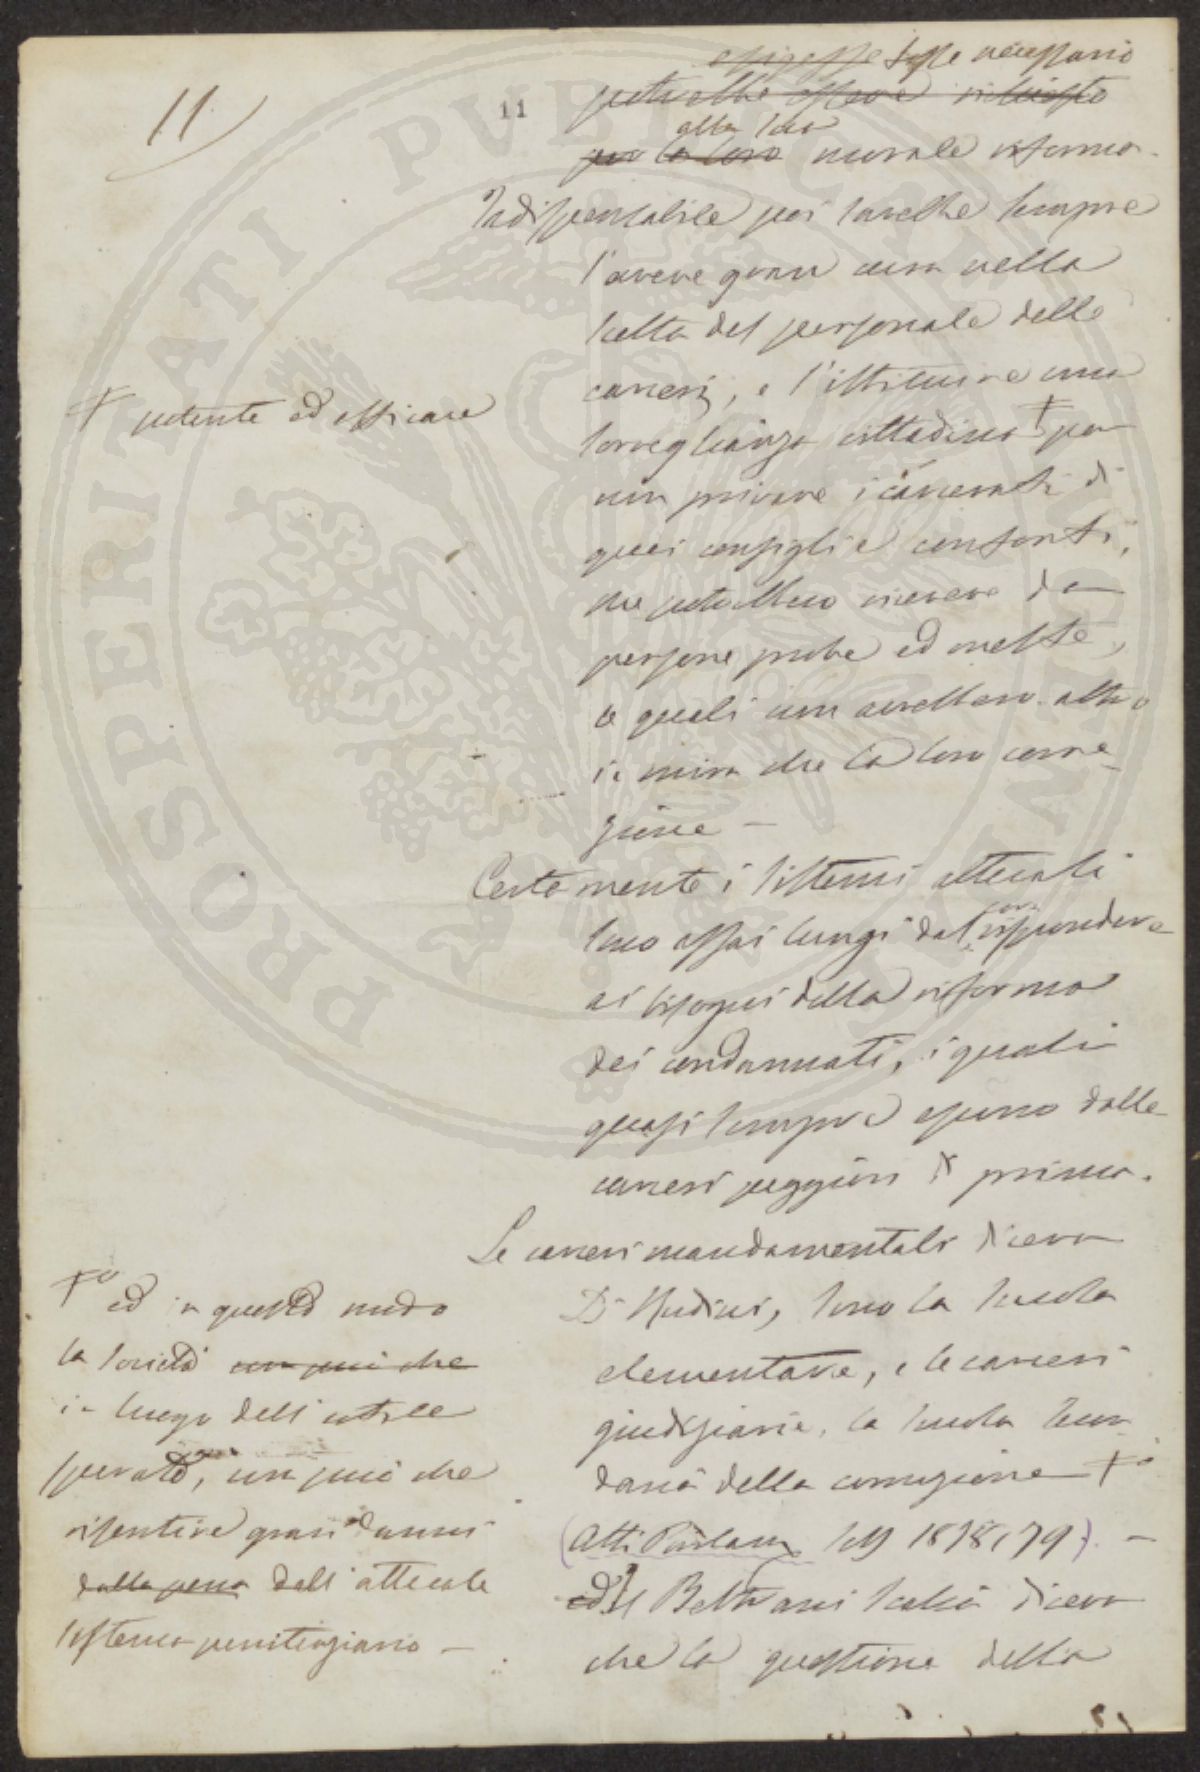 11
11
esigesse fosse necessario
potrebbe essere richiesto
alla loro
per la loro morale riforma.
Indispensabile poi sarebbe sempre
l'avere gran cura nella
scelta del personale delle
carceri, e l'istituire una
sorveglianza cittadina + per
+ potente ed efficace
non privare i carcerati di
quei consigli e conforti,
che potrebbero ricevere da
persone probe ed oneste,
le quali non avrebbero altro
in mira che la loro corre-
zione —
Certamente i sistemi attuali
sono assai lungi dal corrispondere
ai bisogni della riforma
dei condannati, i quali
quasi sempre escono dalle
carceri peggiori di prima.
Le carceri mandamentali diceva
Di Rudinì, sono la scuola
elementare, e le carceri
giudiziarie, la scuola secon-
daria della corruzione +o
(Atti Parlam 1878, 79). —
ed il Beltrani Scalia diceva
che la questione della
+o ed in questo modo
la società non può che
in luogo dell'utile
sperato, non può che
risentire gravi danni
dalla pena dell'attuale
sistema penitenziario —
PROSPERITATI PUBLICAE AUGENDAE